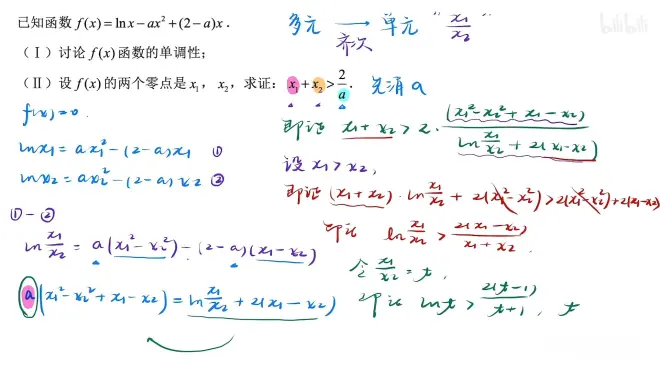 已知函数 f(x)=lnx-ax²+(2-a)x.
(Ⅰ)讨论 f(x)函数的单调性;
(Ⅱ)设 f(x)的两个零点是 x₁, x₂,求证: x₁+x₂>2/a.
f(x)=0.
lnx₁=ax₁²-(2-a)x₁ ①
lnx₂=ax₂²-(2-a)x₂ ②
①-②
ln x₁/x₂ = a(x₁²-x₂²)-(2-a)(x₁-x₂)
a(x₁²-x₂²+x₁-x₂)=ln x₁/x₂+2(x₁-x₂)
多元 → 单元 "x₁/x₂"
齐次
先消a
即证 x₁+x₂>2·(x₁²-x₂²+x₁-x₂)/(ln x₁/x₂+2(x₁-x₂))
设 x₁>x₂,
即证(x₁+x₂)·ln x₁/x₂+2(x₁²-x₂²)>2(x₁²-x₂²)+2(x₁-x₂)
即证 ln x₁/x₂>2(x₁-x₂)/(x₁+x₂).
令 x₁/x₂=t,
即证 lnt>2(t-1)/(t+1), t
bilibili